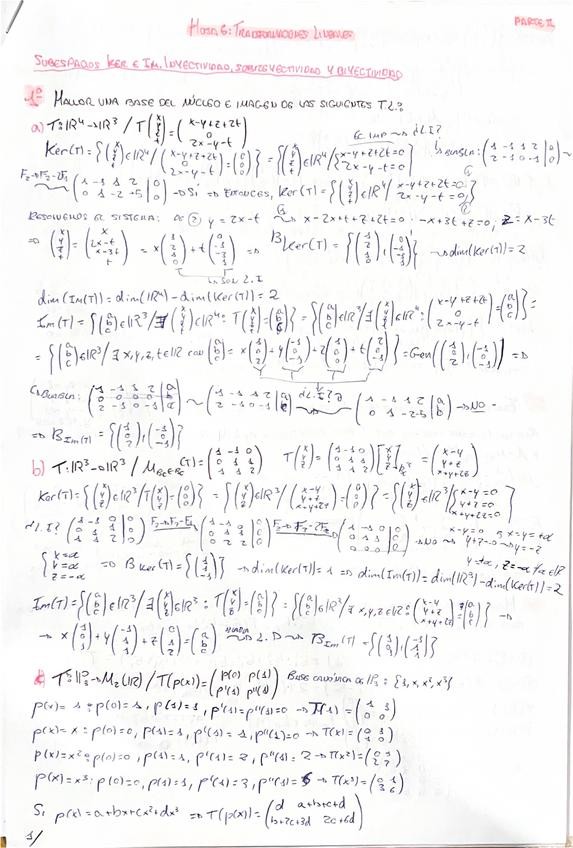 PARTE II
HOJA 6: TRANSFORMACIONES LINEALES
SUBESPACIOS KER E IM. INYECTIVIDAD, SOBREYECTIVIDAD Y BIYECTIVIDAD
1º HALLAR UNA BASE DEL NÚCLEO E IMAGEN DE LAS SIGUIENTES T.L:
a) T: ℝ⁴→ℝ³ / T(x y z t) = (x-y+z+2t 0 2x-y-t)
Ker(T) = {(x y z t) ∈ ℝ⁴ / (x-y+z+2t 0 2x-y-t) = (0 0 0)} = {(x y z t) ∈ ℝ⁴ / x-y+z+2t=0 2x-y-t=0}
F₂→F₂-2F₁ (1 -1 1 2 | 0 0 1 -2 -5 | 0) → SÍ → ENTONCES, Ker(T) = {(x y z t) ∈ ℝ⁴ / x-y+z+2t=0 2x-y-t=0}
RESOLVEMOS EL SISTEMA: DE ② y = 2x-t → x-2x+t+z+2t=0 · -x+3t+z=0; z = x-3t
⇒ (x y z t) = (x 2x-t x-3t t) = x(1 2 1 0) + t(0 -1 -3 1) ⇒ B Ker(T) = {(1 2 1 0), (0 -1 -3 1)} → dim(Ker(T)) = 2
SON L.I
dim(Im(T)) = dim(ℝ⁴) - dim(Ker(T)) = 2
Im(T) = {(a b c) ∈ ℝ³ / ∃ (x y z t) ∈ ℝ⁴: T(x y z t) = (a b c)} = {(a b c) ∈ ℝ³ / ∃ (x y z t) ∈ ℝ⁴: (x-y+z+2t 0 2x-y-t) = (a b c)} =
= {(a b c) ∈ ℝ³ / ∃ x,y,z,t ∈ ℝ con (a b c) = x(1 0 2) + y(-1 0 -1) + z(1 0 0) + t(2 0 -1)} = Gen{(1 0 2), (-1 0 -1)} ⇒
¿L.I?
(1 -1 1 2 | a 0 0 0 0 | b 2 -1 0 -1 | c) ~ (1 -1 1 2 | a 2 -1 0 -1 | c) ~ (1 -1 1 2 | a 0 1 -2 -5 | b) → NO
⇒ B Im(T) = {(1 0 2), (-1 0 -1)}
b) T: ℝ³→ℝ³ / M (T) = (1 -1 0 0 1 1 1 1 2) T(x y z) = (1 -1 0 0 1 1 1 1 2)[x y z] = (x-y y+z x+y+2z)
Ker(T) = {(x y z) ∈ ℝ³ / T(x y z) = (0 0 0)} = {(x y z) ∈ ℝ³ / (x-y y+z x+y+2z) = (0 0 0)} = {(x y z) ∈ ℝ³ / x-y=0 y+z=0 x+y+2z=0}
¿L.I? (1 -1 0 | 0 0 1 1 | 0 1 1 2 | 0) F₃→F₃-F₁ (1 -1 0 | 0 0 1 1 | 0 0 2 2 | 0) F₃→F₃-2F₂ (1 -1 0 | 0 0 1 1 | 0 0 0 0 | 0) → NO → x-y=0 → x=y=α y+z=0 → y=-z
y=α, z=-α ∀α∈ℝ
{x=α y=α z=-α ⇒ B Ker(T) = {(1 1 -1)} → dim(Ker(T)) = 1 ⇒ dim(Im(T)) = dim(ℝ³) - dim(Ker(T)) = 2
Im(T) = {(a b c) ∈ ℝ³ / ∃ (x y z) ∈ ℝ³: T(x y z) = (a b c)} = {(a b c) ∈ ℝ³ / ∃ x,y,z ∈ ℝ: (x-y y+z x+y+2z) = (a b c)} →
→ x(1 0 1) + y(-1 1 1) + z(0 1 2) = (a b c) L.D → B Im(T) = {(1 0 1), (-1 1 1)}
c) T: ℙ₃→M₂(ℝ) / T(p(x)) = (p(0) p(1) p'(1) p''(1)) BASE CANÓNICA DE ℙ₃: {1, x, x², x³}
p(x) = 1: p(0)=1, p(1)=1, p'(1)=p''(1)=0 → T(1) = (1 1 0 0)
p(x) = x: p(0)=0, p(1)=1, p'(1)=1, p''(1)=0 → T(x) = (0 1 1 0)
p(x)=x²: p(0)=0, p(1)=1, p'(1)=2, p''(1)=2 → T(x²) = (0 1 2 2)
p(x)=x³: p(0)=0, p(1)=1, p'(1)=3, p''(1)=6 → T(x³) = (0 1 3 6)
Si p(x)=a+bx+cx²+dx³ ⇒ T(p(x)) = (d a+b+c+d b+2c+3d 2c+6d)
1/